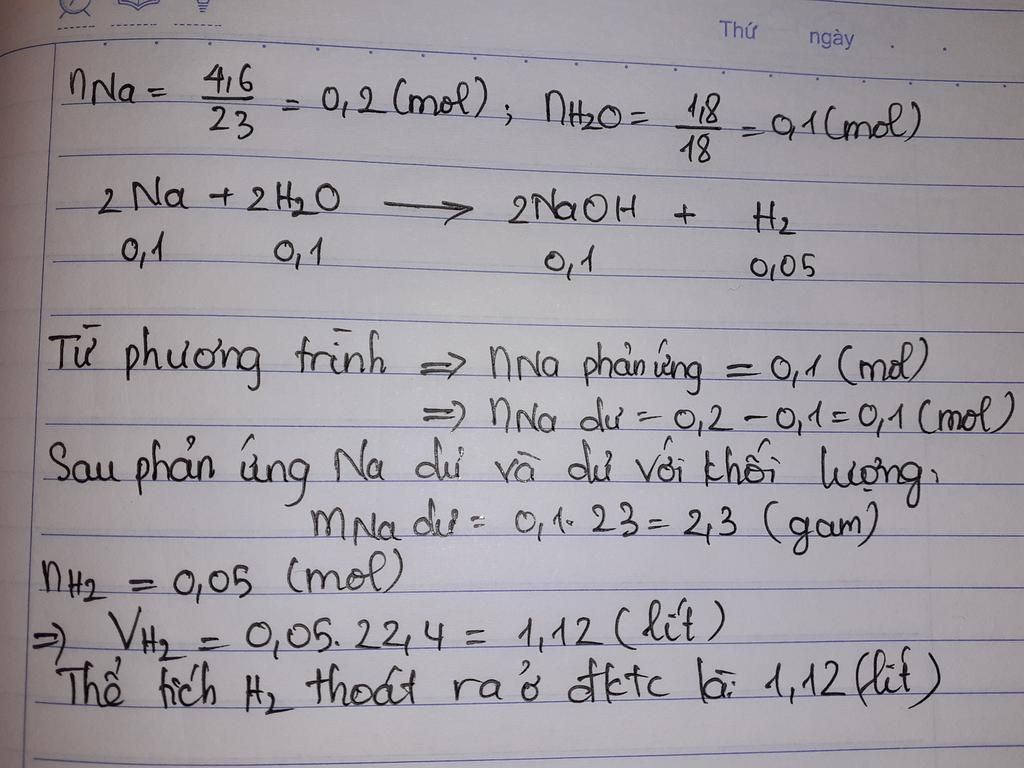 Thứ ngày
nNa = 4,6/23 = 0,2 (mol); nH2O = 1,8/18 = 0,1 (mol)
2Na + 2H2O → 2NaOH + H2
0,1 0,1 0,1 0,05
Từ phương trình => nNa phản ứng = 0,1 (mol)
=> nNa dư = 0,2 - 0,1 = 0,1 (mol)
Sau phản ứng Na dư và dư với khối lượng:
mNa dư = 0,1. 23 = 2,3 (gam)
nH2 = 0,05 (mol)
=> VH2 = 0,05. 22,4 = 1,12 (lít)
Thể tích H2 thoát ra ở đktc là: 1,12 (lít)